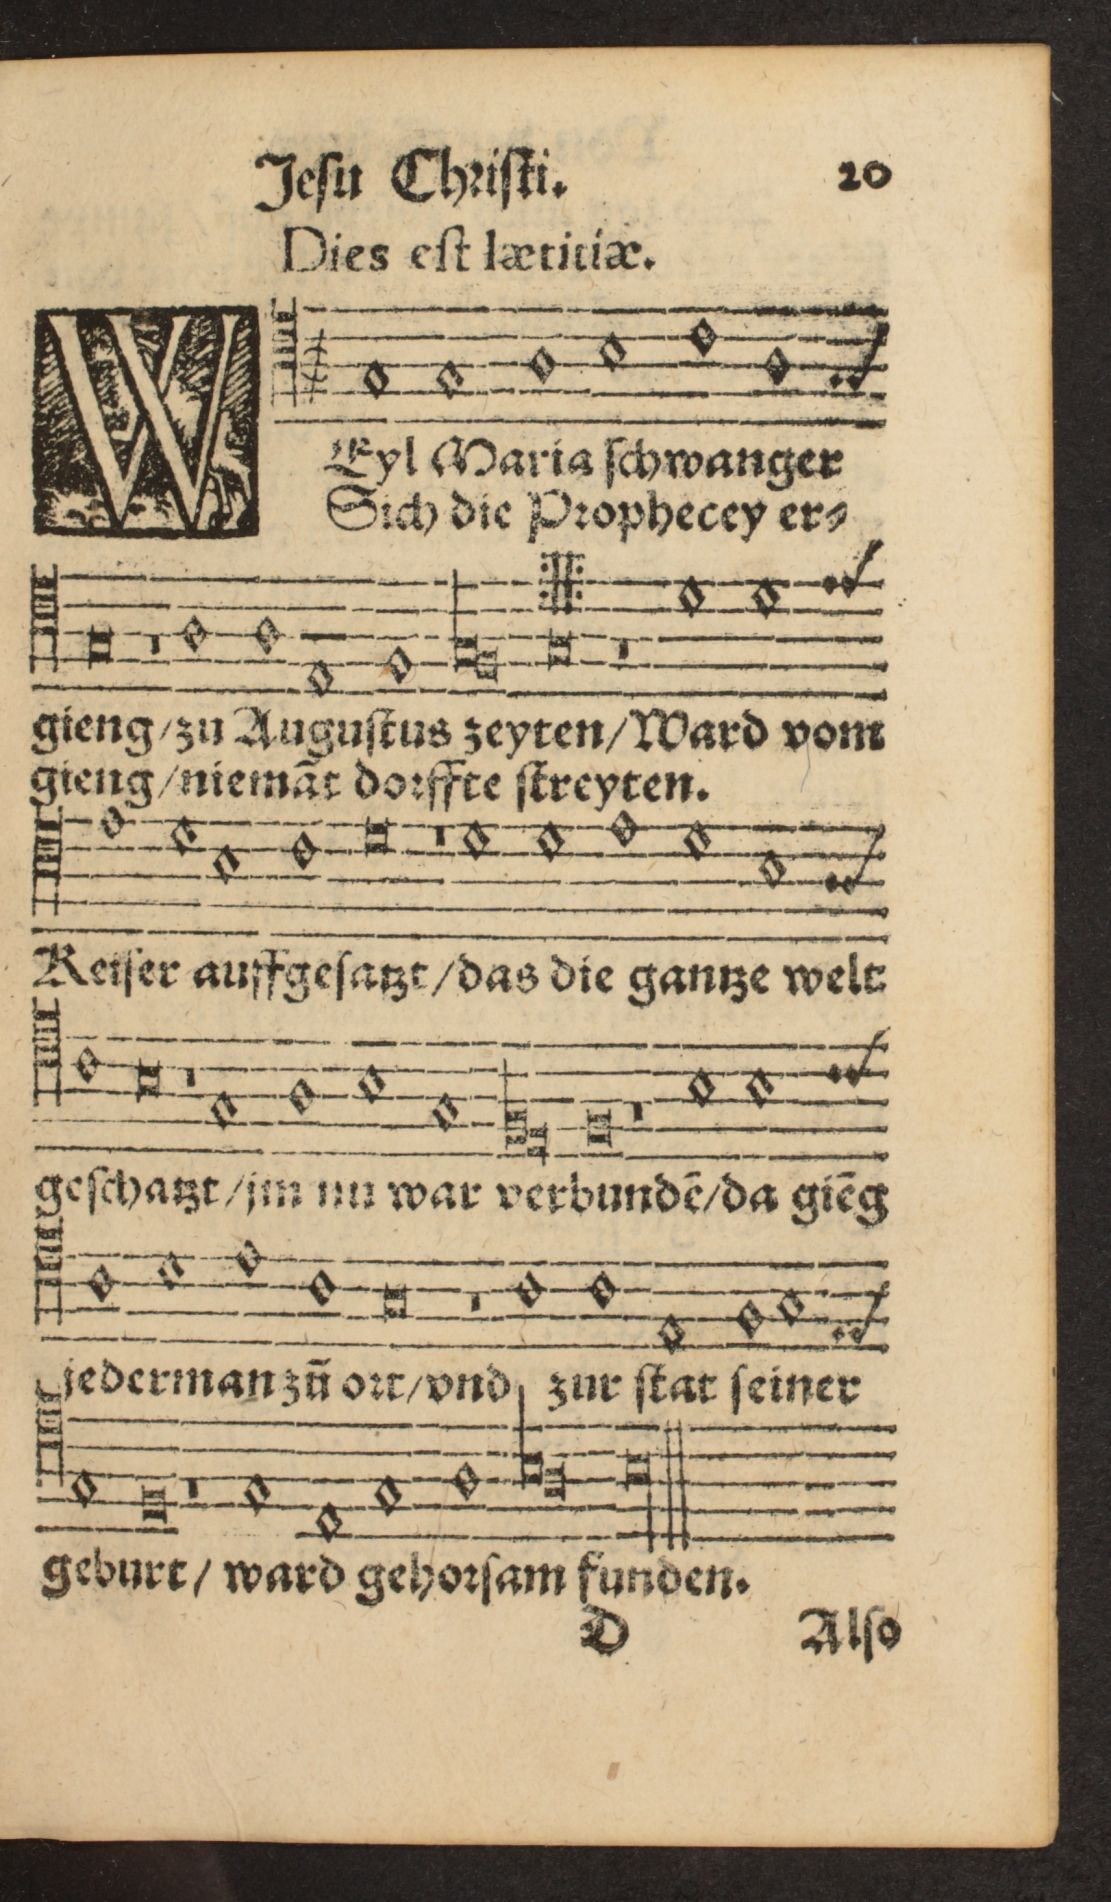 Jesu Christi. 20
Dies est lætitiæ.
WEyl Maria schwanger
Sich die Prophecey er⸗
gieng/zu Augustus zeyten/Ward vom
gieng/niemãt dorffte streyten.
Keiser auffgesatzt/das die gantze welt
geschatzt/jm nu war verbundẽ/da giẽg
jederman zũ ort/vnd zur stat seiner
geburt/ ward gehorsam funden.
D Also